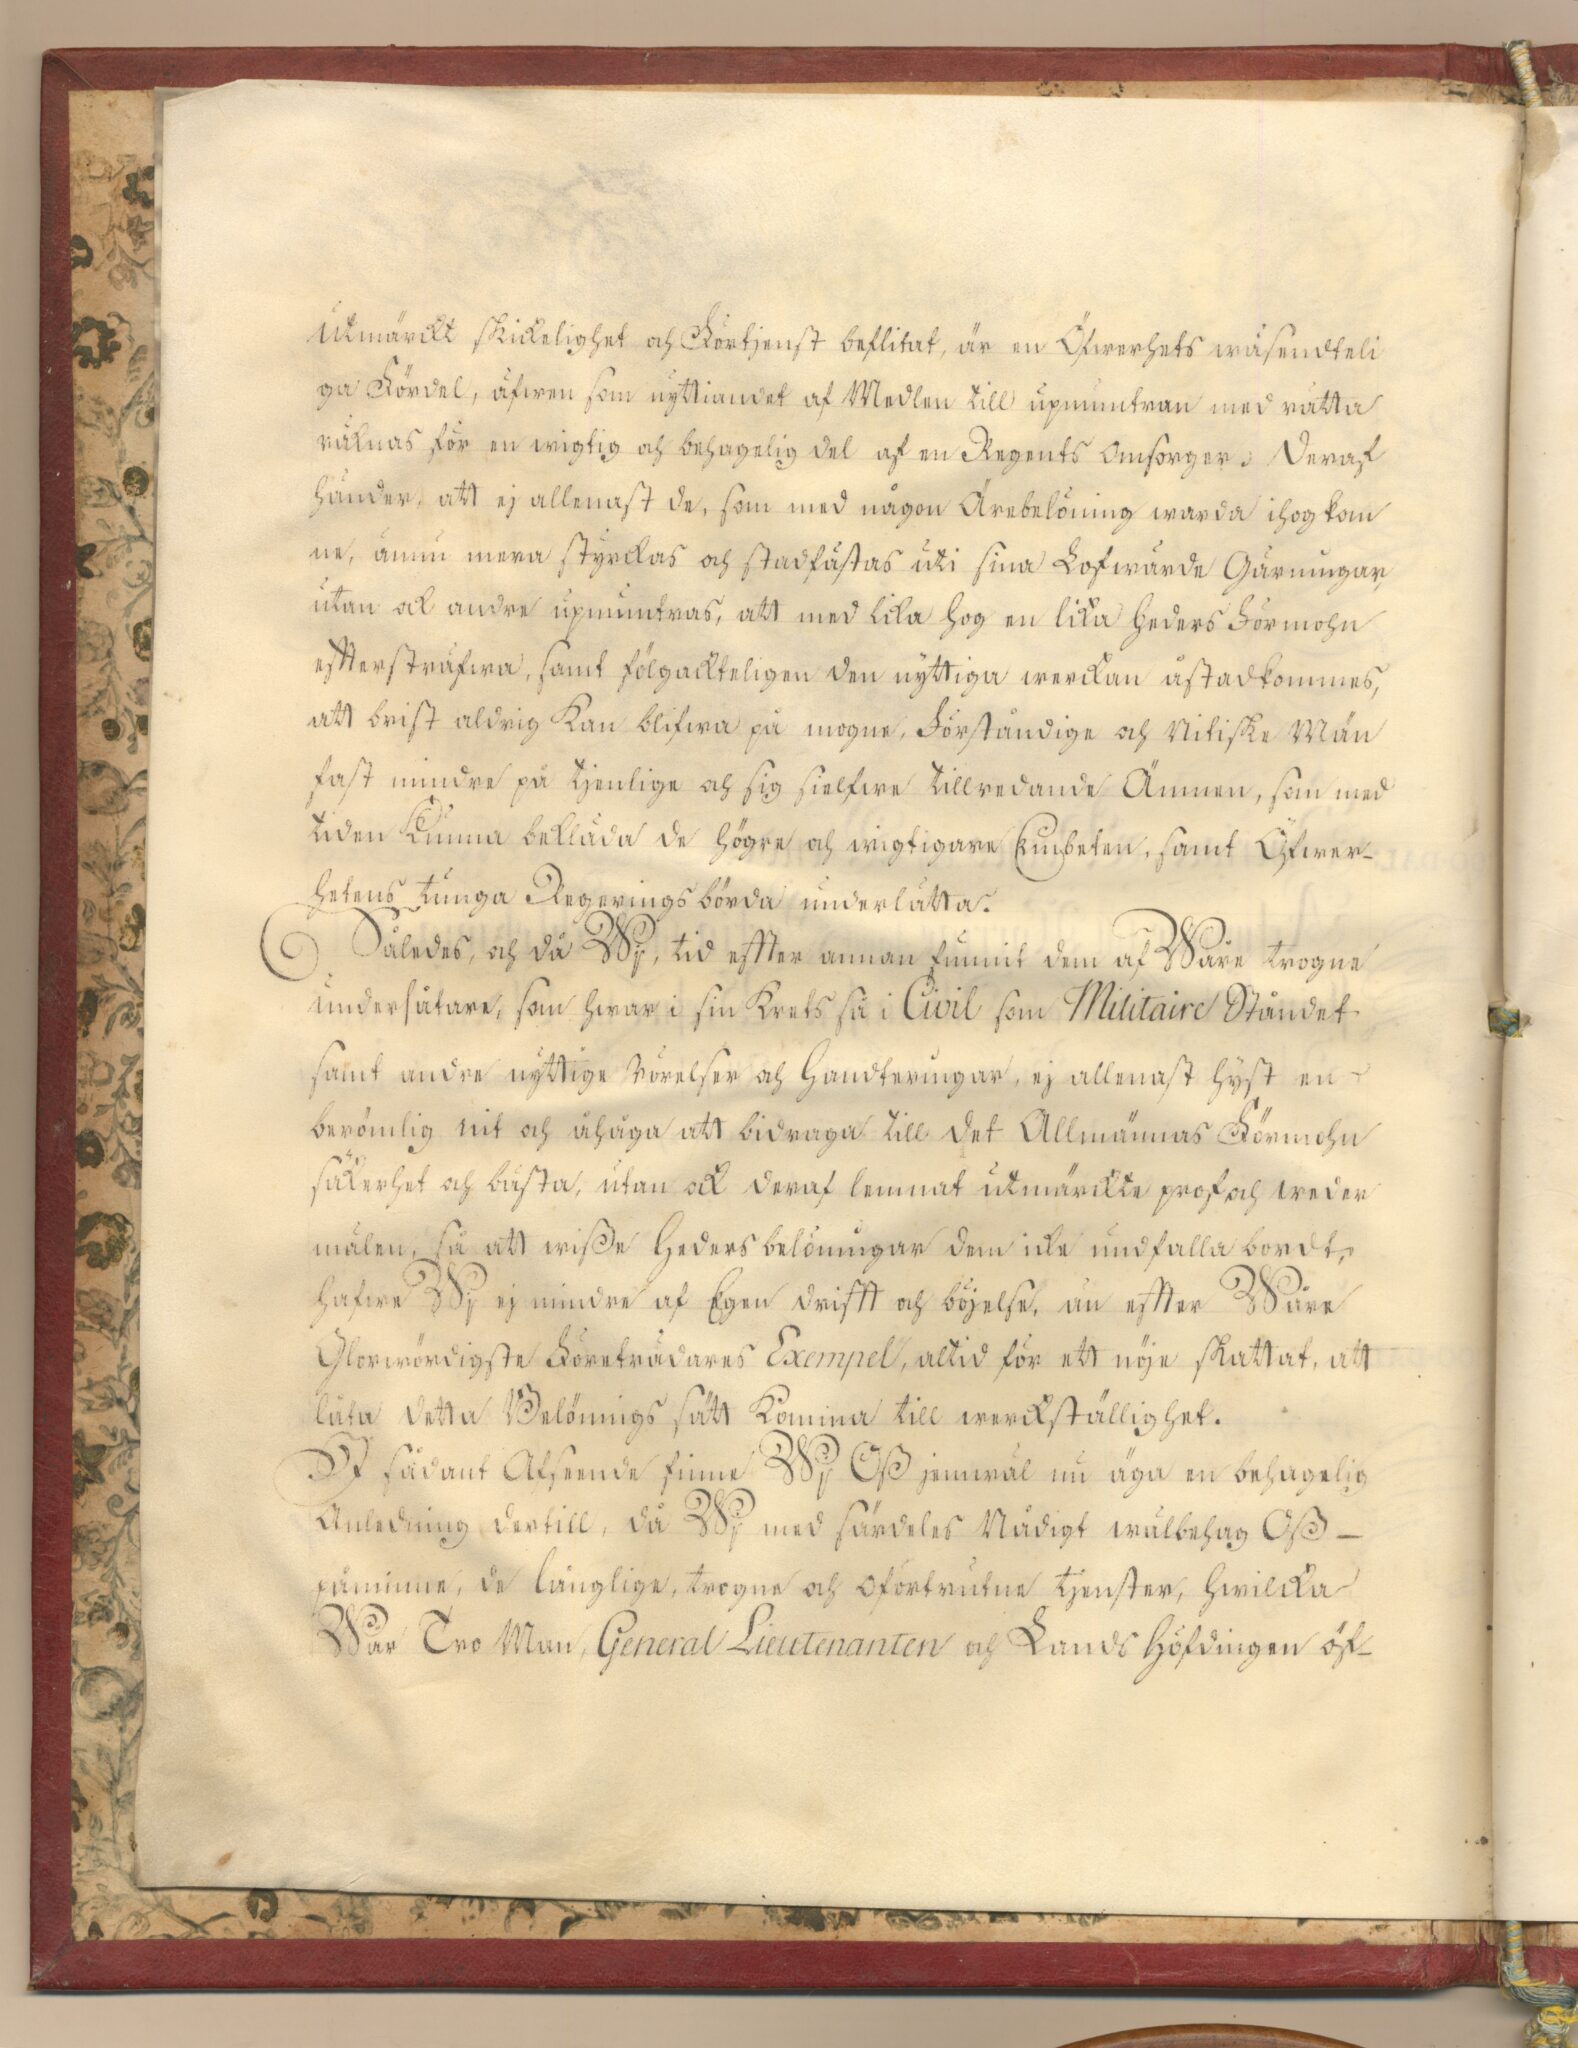 utmärckt skickelighet och Förtjenst beflitat, är en Öfwerhets wäsendteli
ga Fördel, äfwen som nyttiandet af Medlen till upmuntran med rätta
räknas för en wigtig och behagelig del af en Regents Omsorger. Deraf
händer, att ej allenast de, som med någon Ärebelöning warda ihogkom
ne, ännu mera styrckas och stadfästas uti sina Lofwärde Gärningar,
utan ock andre upmuntras, att med lika hog en lika heders Förmohn
effterstråfwa, samt fölgackteligen den nyttiga werckan åstadkommes,
att brist aldrig kan blifwa på mogne, Förståndige och Nitiske Män
fast mindre på tjenlige och sig sielfwe tillredande Ämnen, som med
tiden kunna bekläda de högre och wigtigare Embeten, samt Öfwer-
hetens tunga Regerings börda underlätta.
Således, och då Wj, tid effter annan funnit dem af Wåre trogne
undersåtare, som hwar i sin krets så i Civil som Militaire Ståndet
samt andre nyttige rörelser och Handteringar, ej allenast hyst en
berömlig nit och åhåga att bidraga till det Allmännas Förmohn
säkerhet och bästa, utan ock deraf lemnat utmärckte prof och weder
mälen, så att wiße Heders belöningar dem icke undfalla bordt,
hafwe Wj ej mindre af Egen drifft och böjelse, än effter Wåre
Glorwördigste Företrädares Exempel, altid för ett nöje skattat, att
låta detta Belönings sätt komma till werckställighet.
I sådant Afseende finne Wj Oß jemwäl nu äga en behagelig
Anledning dertill, då Wj med särdeles Nådigt wälbehag Oß -
påminne, de långlige, trogne och oförtrutne tjenster, hwilcka
Wår Tro Man, General Lieutenanten och Lands Höfdingen öf-